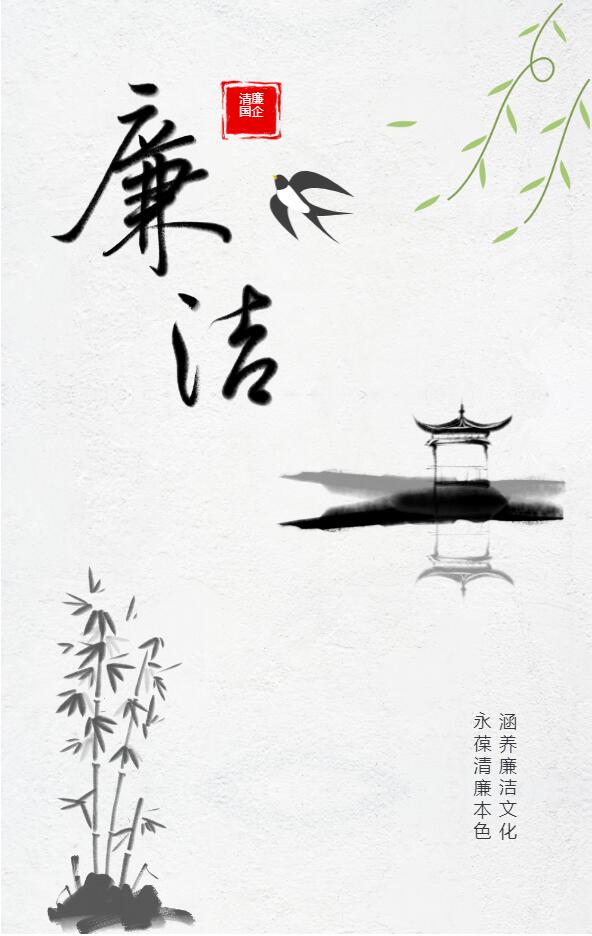 廉洁
清廉
国企
涵养廉洁文化
永葆清廉本色